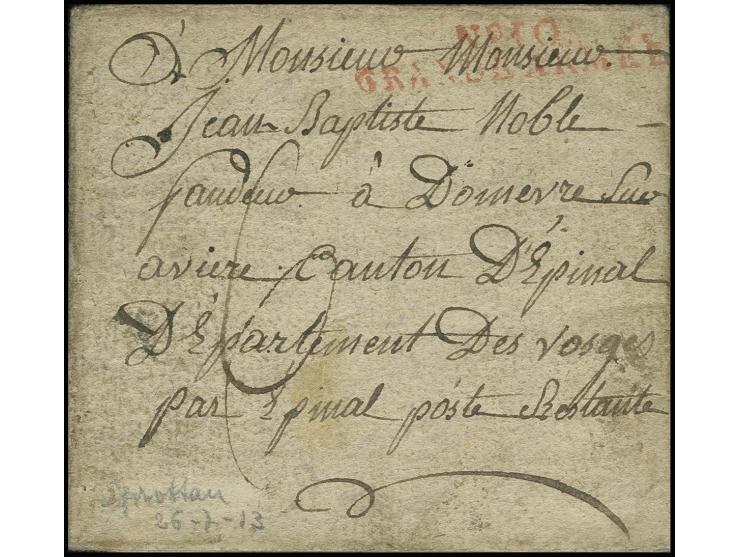 N° 10
GRANDE ARMÉE
À Monsieur Monsieur
Jean Baptiste Noble
à Domevre Sur
aviere Canton D'Épinal
DÉpartement Des vosges
par Épinal poste Restante
Sprottau
26-7-13